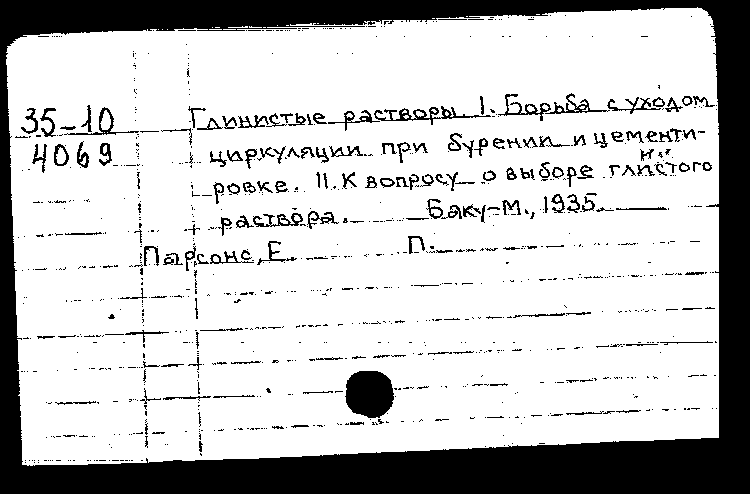 35-10 Глинистые растворы I. Борьба с уходом
4069 циркуляции при бурении и цементи-
ровке. II. К вопросу о выборе глинистого
раствора. Баку-М., 1935.
Парсонс, Е. П.